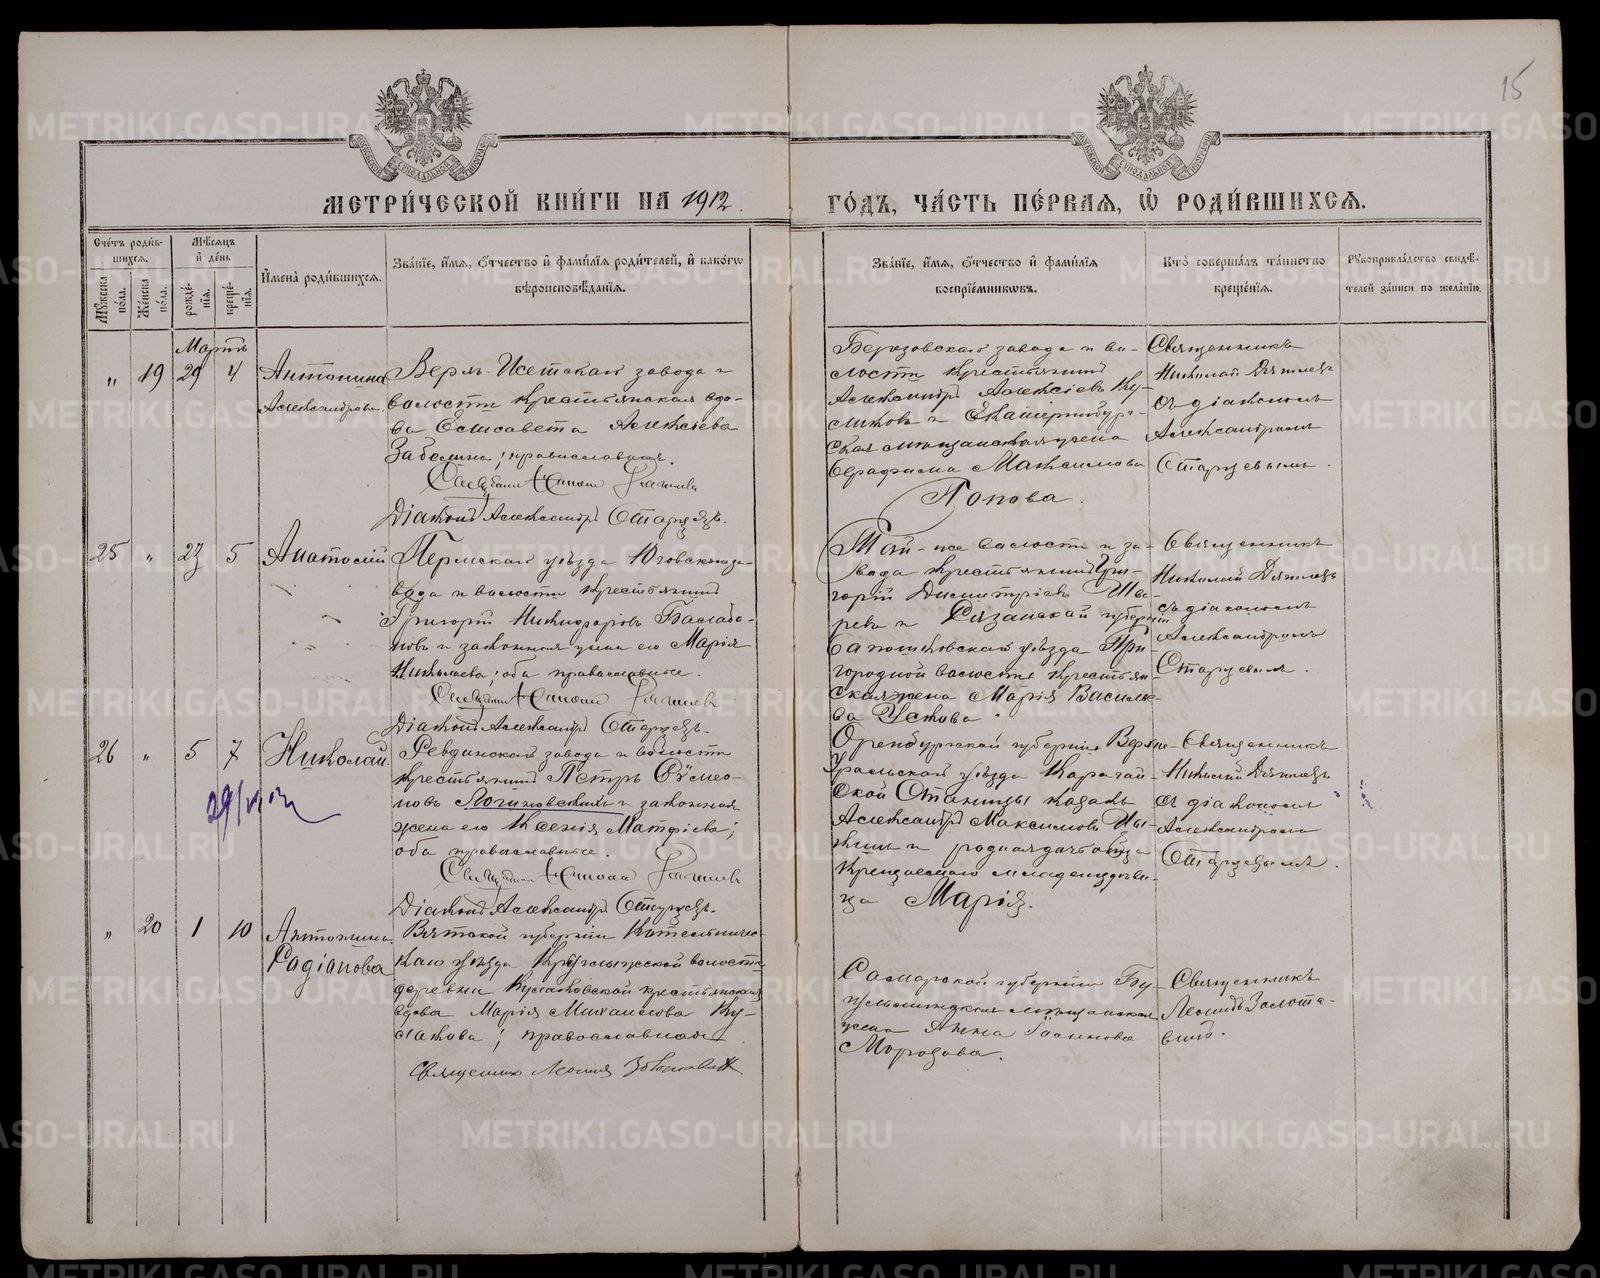 15
МЕТРИ́ЧЕСКОЙ КНИ́ГИ НА 1912
ГО́ДЪ, ЧА́СТЬ ПЕ́РВАЯ, Ѡ҆ РОДИ́ВШИХСЯ.
Сче́тъ роди́в-
шихся.
Му́жеска по́ла.
Же́нска по́ла.
Мѣ́сяцъ
и҆ де́нь
рожде́-
нїя.
креще́-
нїя.
И҆мена̀ роди́вшихся.
Зва́нїе, и҆́мя, ѻ҆́тчество и҆ фами́лїя роди́телей, и҆ како́гѡ
вѣроисповѣ́данїя.
Зва́нїе, и҆́мя, ѻ҆́тчество и҆ фами́лїя
воспрїе́мникѡвъ.
Кто̀ соверша́лъ та́инство
креще́нїя.
Рꙋкоприкла́дство свидѣ́-
телей за́писи по жела́нїю.
Мартъ
„ 19 29 4
Антонина
Александрова.
Верх-Исетскаго завода и
волости крестьянская вдо-
ва Елисавета Алексѣева
Забелина; православная.
Священникъ Николай
Діаконъ Александръ Старцевъ.
Березовскаго завода и во-
лости крестьянинъ
Александръ Алексѣевъ Ку-
ликовъ и Екатеринбург-
ская мѣщанская жена
Серафима Максимова
Попова.
Священникъ
Николай
съ діакономъ
Александромъ
Старцевымъ.
25 „ 27 5
Анатолій
Пермскаго уѣзда Юговского за-
вода и волости крестьянинъ
Григорій Никифоровъ Балаба-
новъ и законная жена его Марія
Николаева; оба православные.
Священникъ Николай
Діаконъ Александръ Старцевъ.
Той-же волости и за-
вода крестьянинъ Гри-
горій Димитріевъ
и Рязанской губерніи
Сапожковскаго уѣзда При-
городной волости крестьян-
ская жена Марія Василье-
ва Ускова.
Священникъ
Николай
съ діакономъ
Александромъ
Старцевымъ.
26 „ 5 7
Николай
Ревдинскаго завода и волости
крестьянинъ Петръ
Логиновскихъ и законная
жена его Ксенія Матфіева;
оба православные.
Священникъ Николай
Діаконъ Александръ Старцевъ.
Оренбургской губерніи Верхне-
Уральскаго уѣзда Карагай-
ской Станицы казакъ
Александръ Максимовъ
и родная дочь отца
крещаемаго младенца дѣви-
ца Марія.
Священникъ
Николай
съ діакономъ
Александромъ
Старцевымъ.
„ 20 1 10
Антонина
Радіонова
Вятской губерніи Котельничес-
каго уѣзда волости
деревни крестьянская
вдова Марія Михаилова Ку-
лакова; православная.
Священникъ Леонидъ
Самарской губерніи Бу-
гульминская мѣщанская
жена Анна
Морозова.
Священникъ
Леонидъ Золота-
винъ.
METRIKI.GASO-URAL.RU